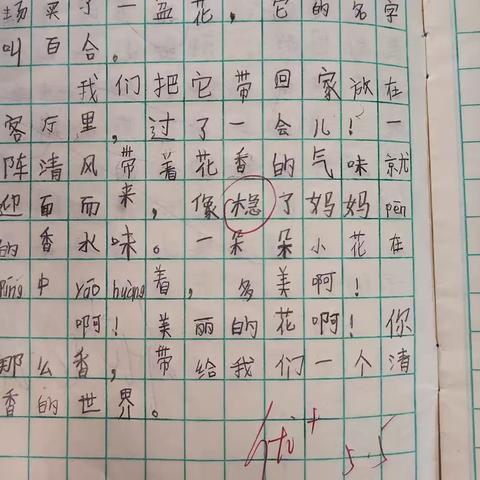 场买了一盆花，它的名字
叫百合。
我们把它带回家放在
客厅里，过了一会儿！一
阵清风带着花香的气味就
迎面而来，像了妈妈pēn
的香水味。一朵朵小花在
píng中yáo huàng着，多美啊！
啊！美丽的花啊！你
那么香，带给我们一个清
香的世界。
5.5